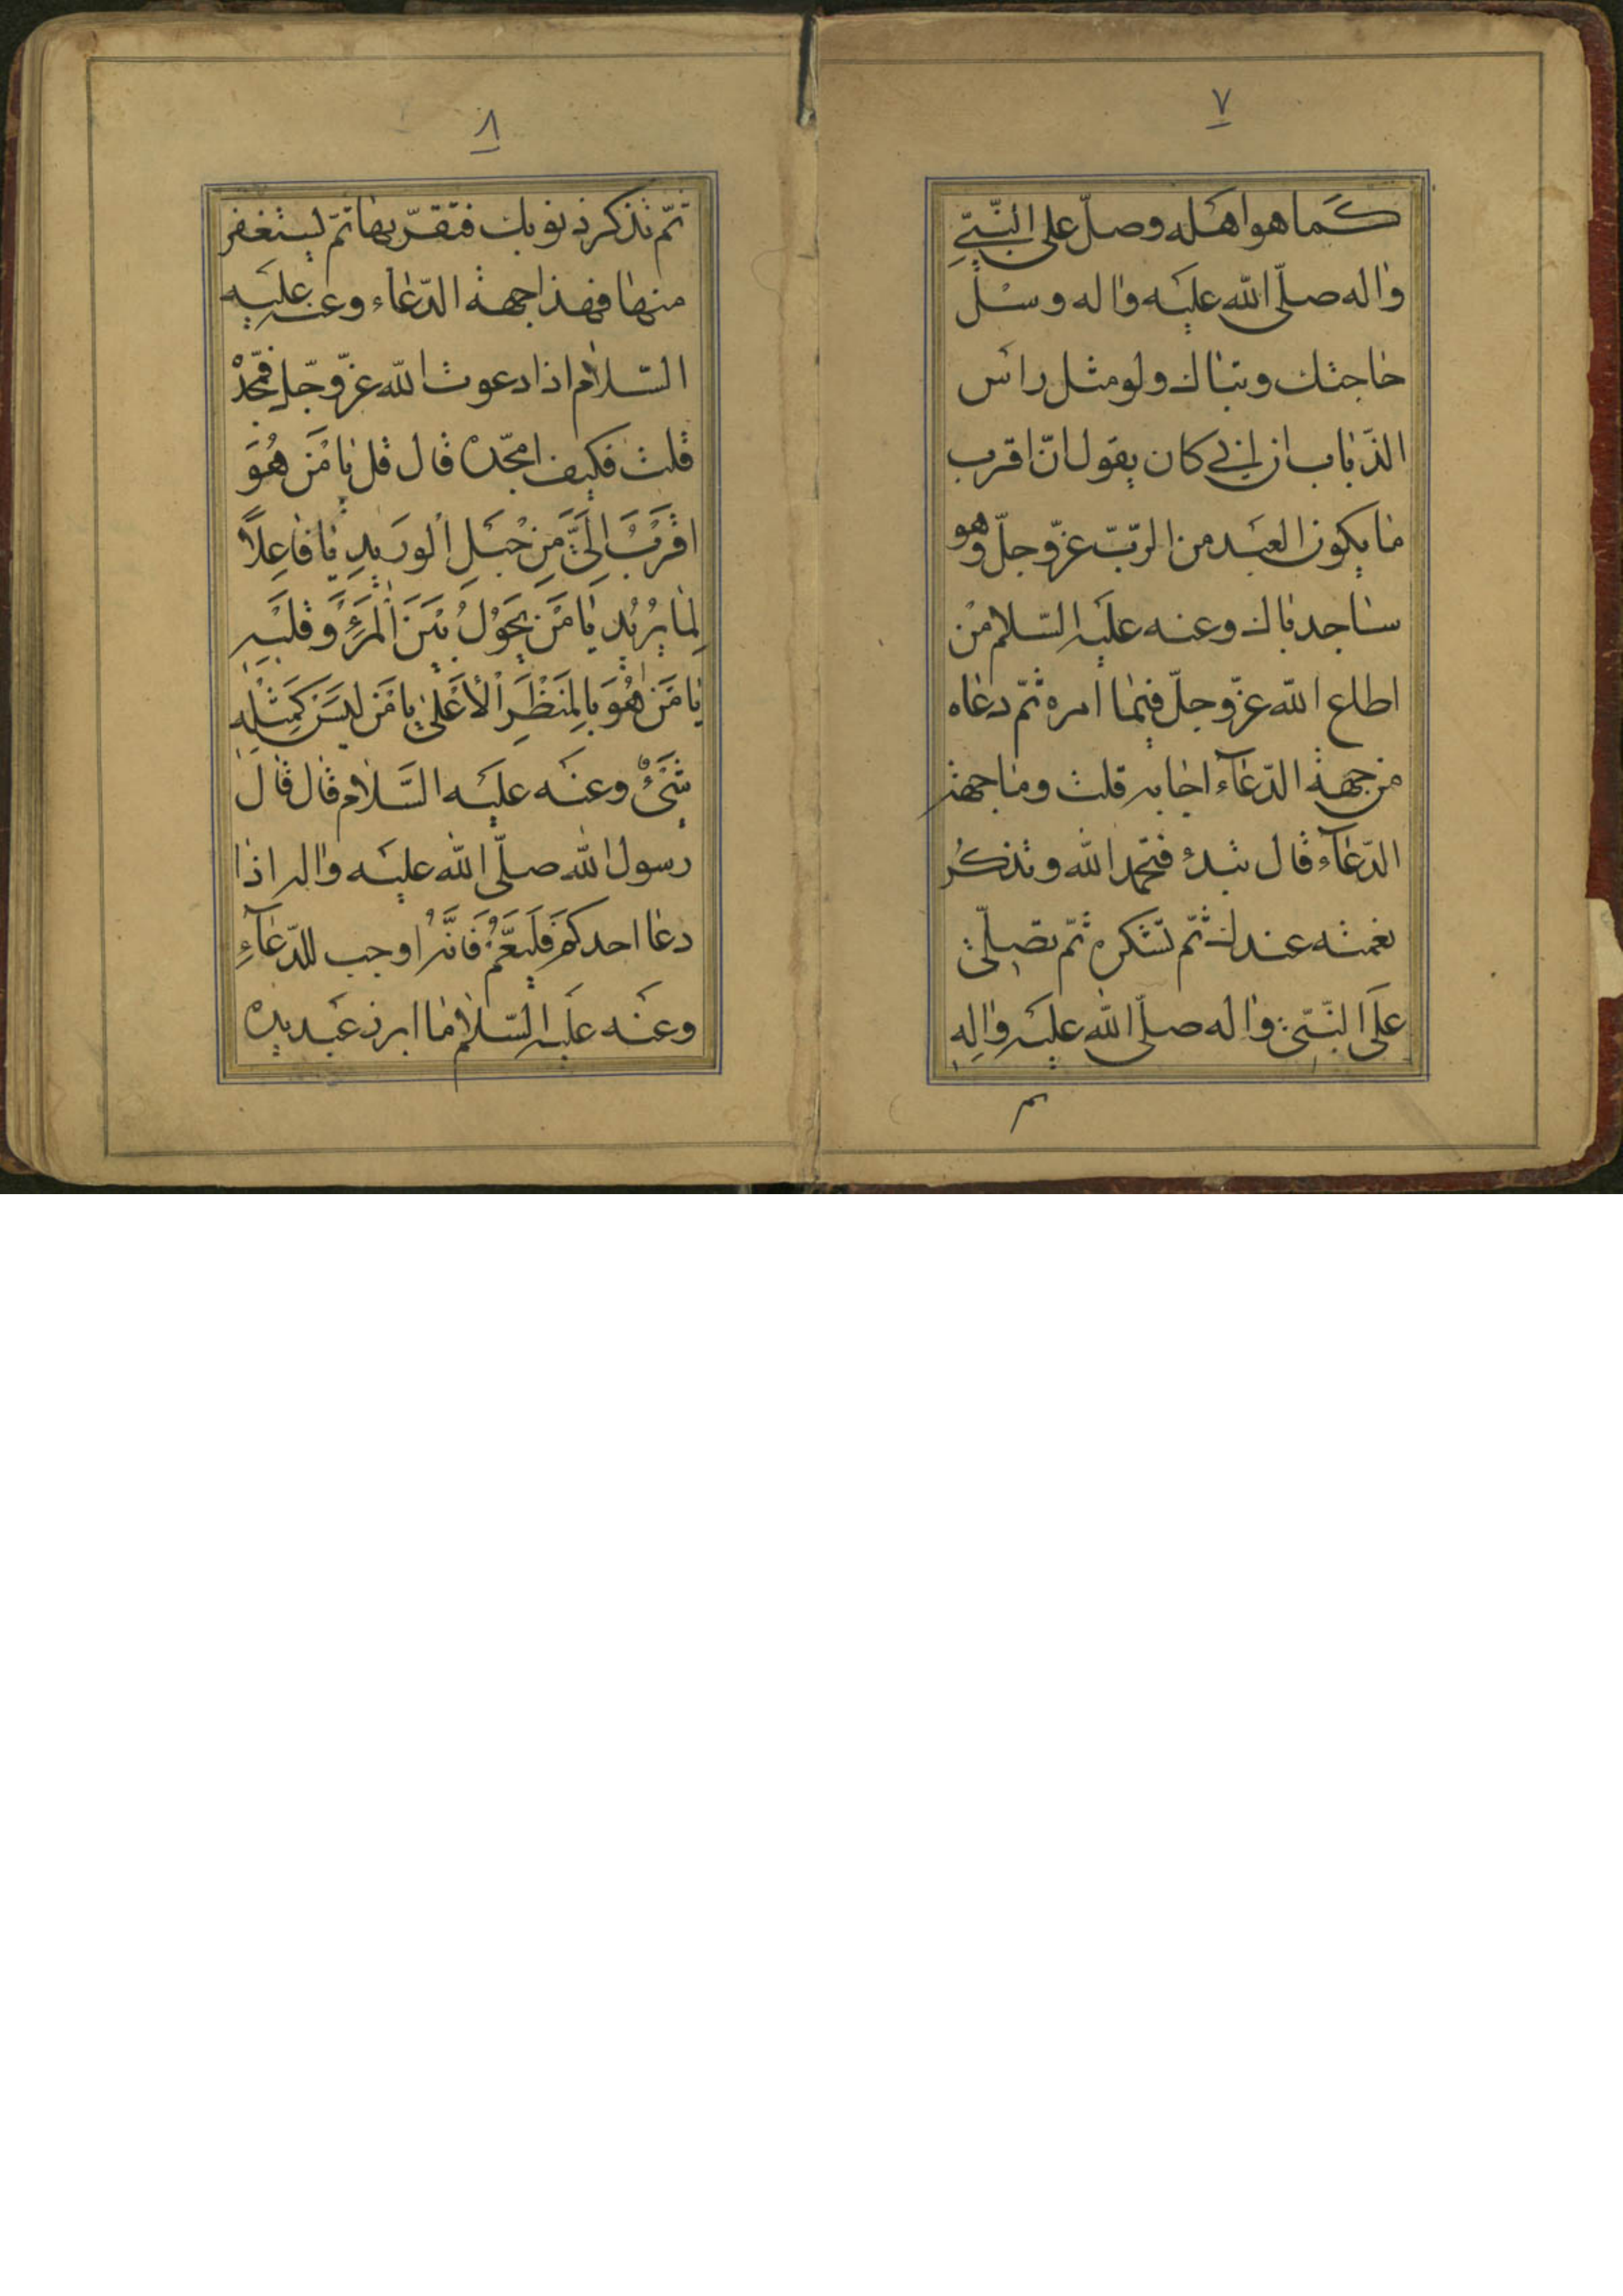 ٧
كَما هو اهله وصلّ علی النّبّي
واله صلّی الله عليه واله وسل
حاجتك وتباك ولو مثل راس
الذّباب ان ابي كان يقول انّ اقرب
ما يكون العبد من الربّ عزّ وجلّ وهو
ساجد باك وعنه عليه السّلام من
اطاع الله عزّ وجلّ فيما امره ثمّ دعاه
من جهة الدّعآء اجابه قلت وما جهة
الدّعآء قال تبدء فتحمد الله وتذكر
نعمته عندك ثمّ تشكره ثمّ تصلّي
علی النّبّي واله صلّی الله عليه واله
٨
ثمّ تذكر ذنوبك فتقرّ بها ثمّ تستغفر
منها فهذا جهة الدّعاء وعنه عليه
السّلام اذا دعوت الله عزّ وجلّ فمجّدْ
قلت فكيف امجّده قال قل يا مَن هُوَ
اقرَبُ اِلَيَّ مِن حَبْلِ الْوَريدِ يا فاعِلاً
لِما يُريد يا مَنْ يَحُوْلُ بَيْنَ الْمَرْءِ وَقَلْبِهِ
يا مَنْ هُوَ بِالمَنْظَرِ الْأَعْلیٰ يا مَن لَيسَ كَمِثْلِهِ
شَيْءٌ وعنه عليه السَّلام قال قال
رسول الله صلّی الله عليه واله اذا
دعا احدكم فَليَعُمَّ فَانَّهُ اوجب للدّعآءِ
وعنه عليه السّلام ما ابرز عَبد يده